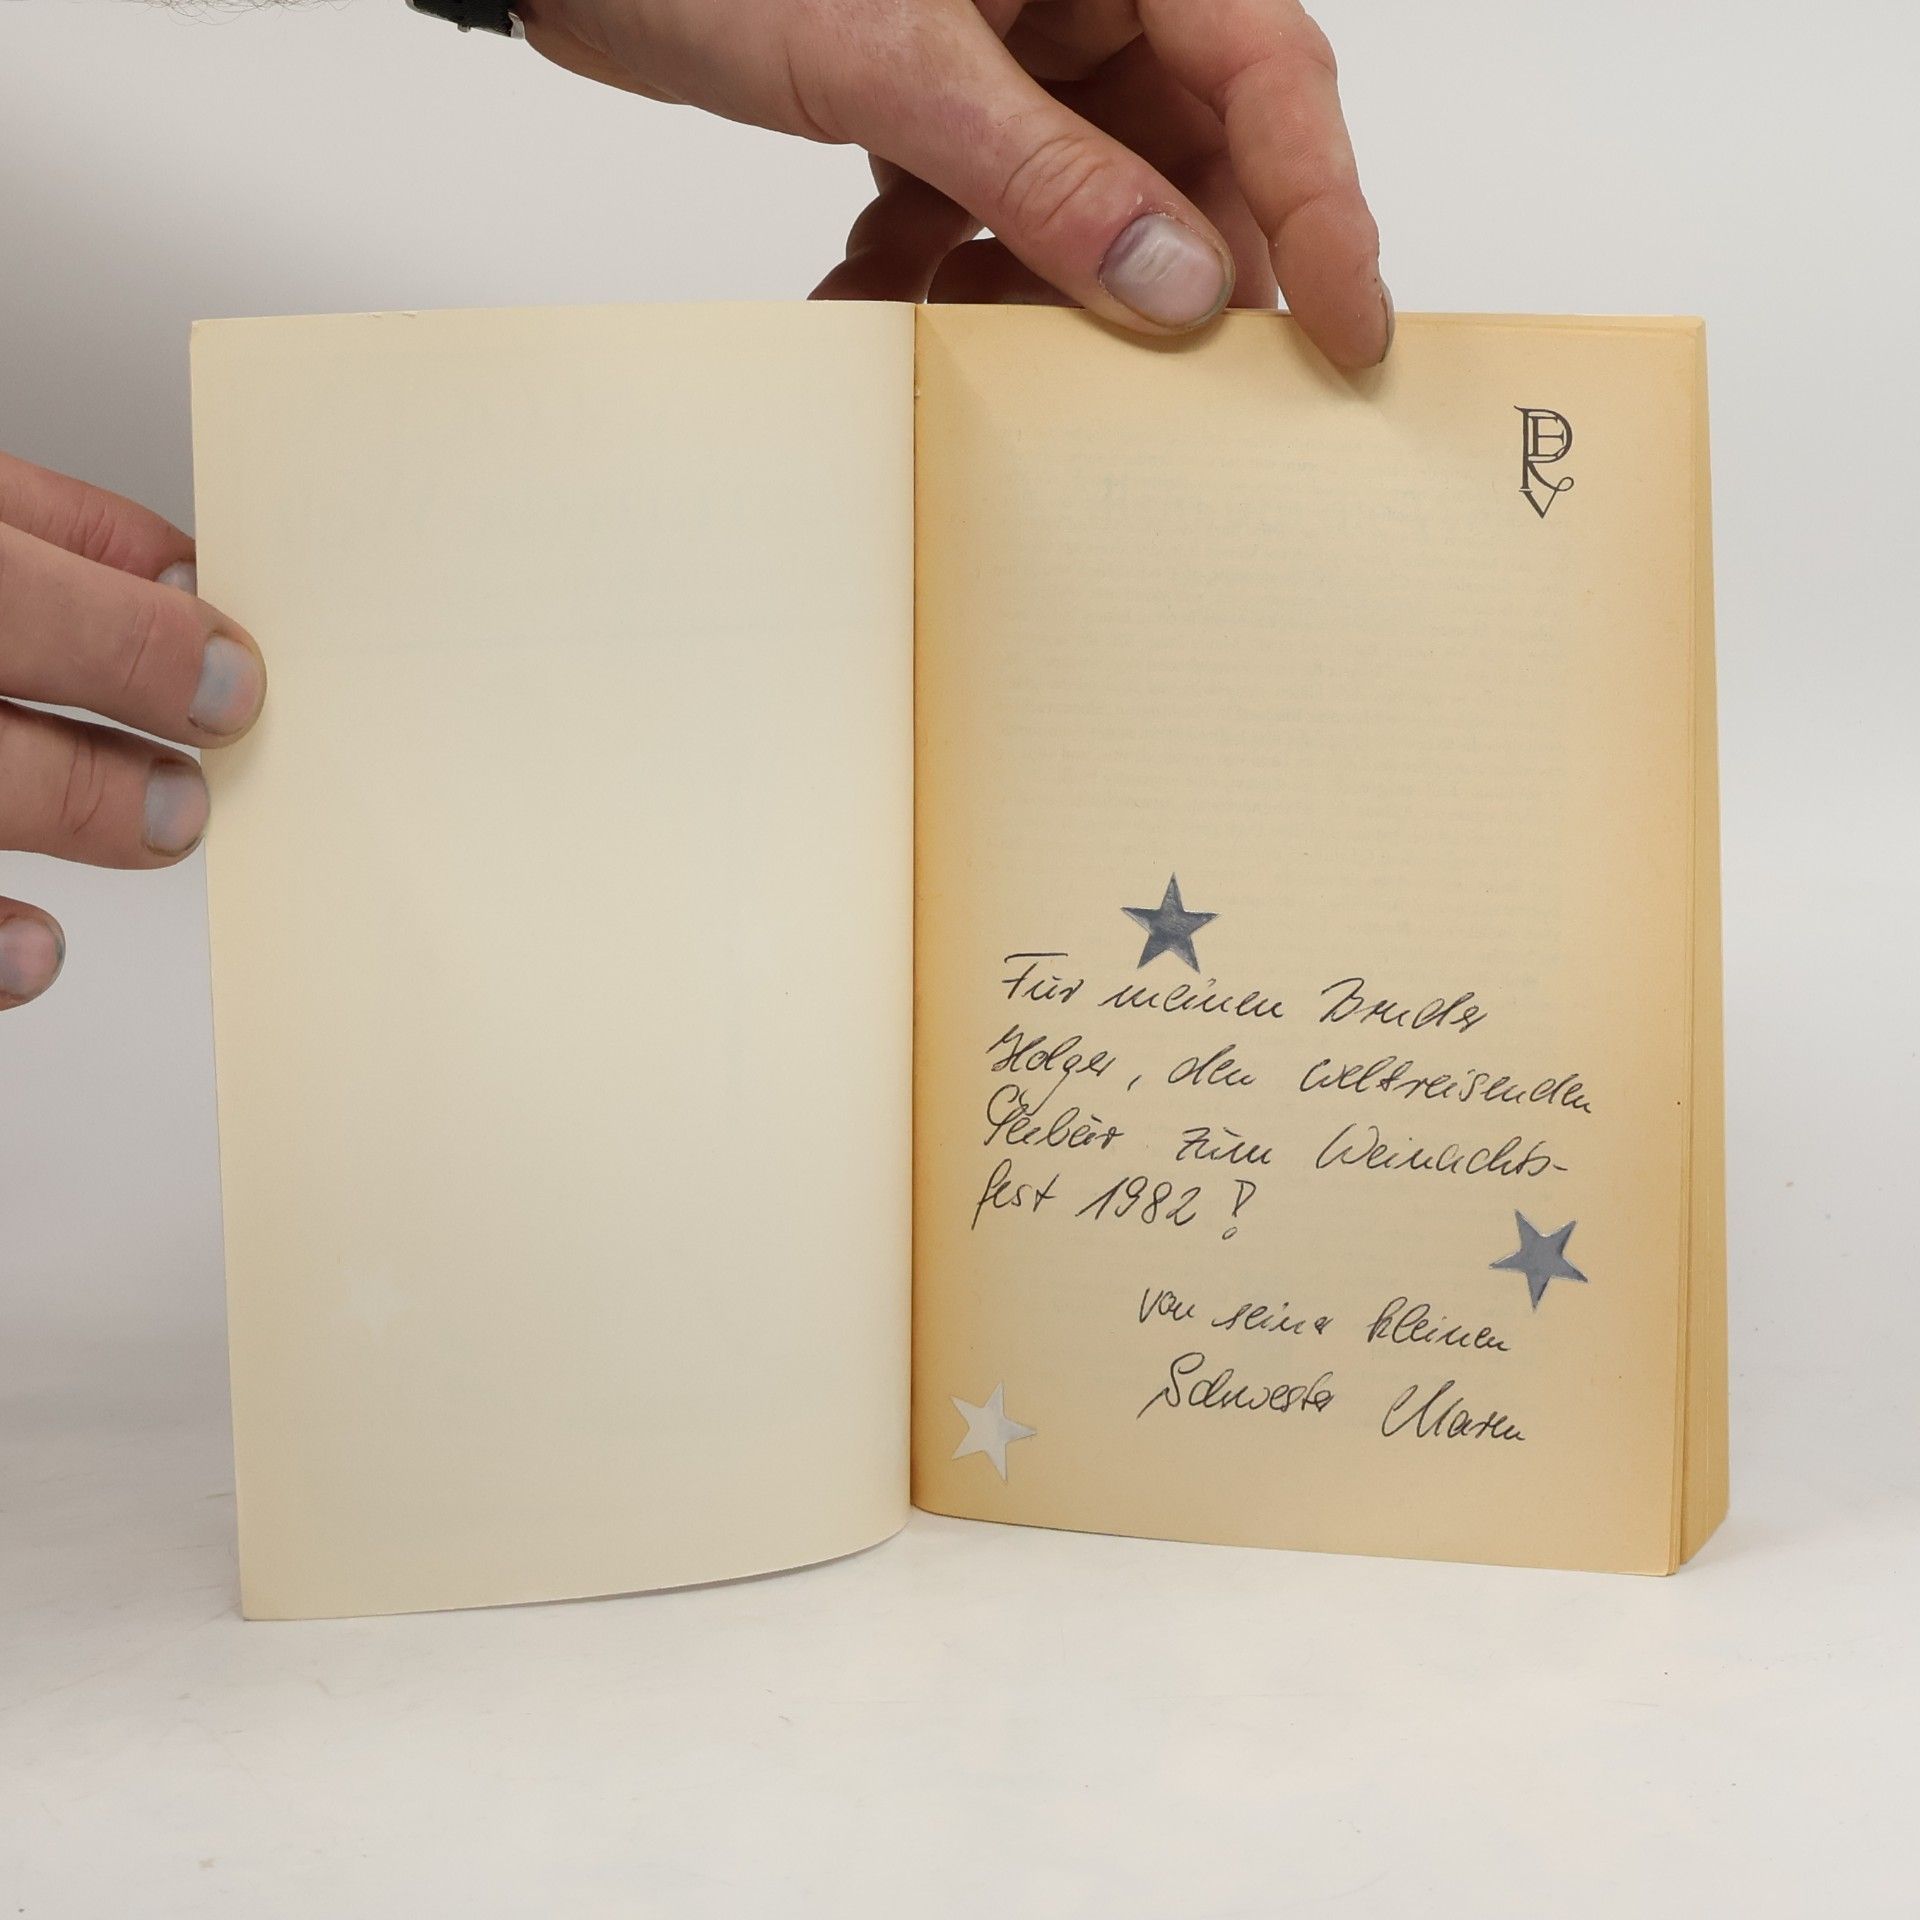 PERV
Für meinen Bruder
Holger, den weltreisenden
zum Weinachts-
fest 1982!
von seiner kleinen
Schwester Maren